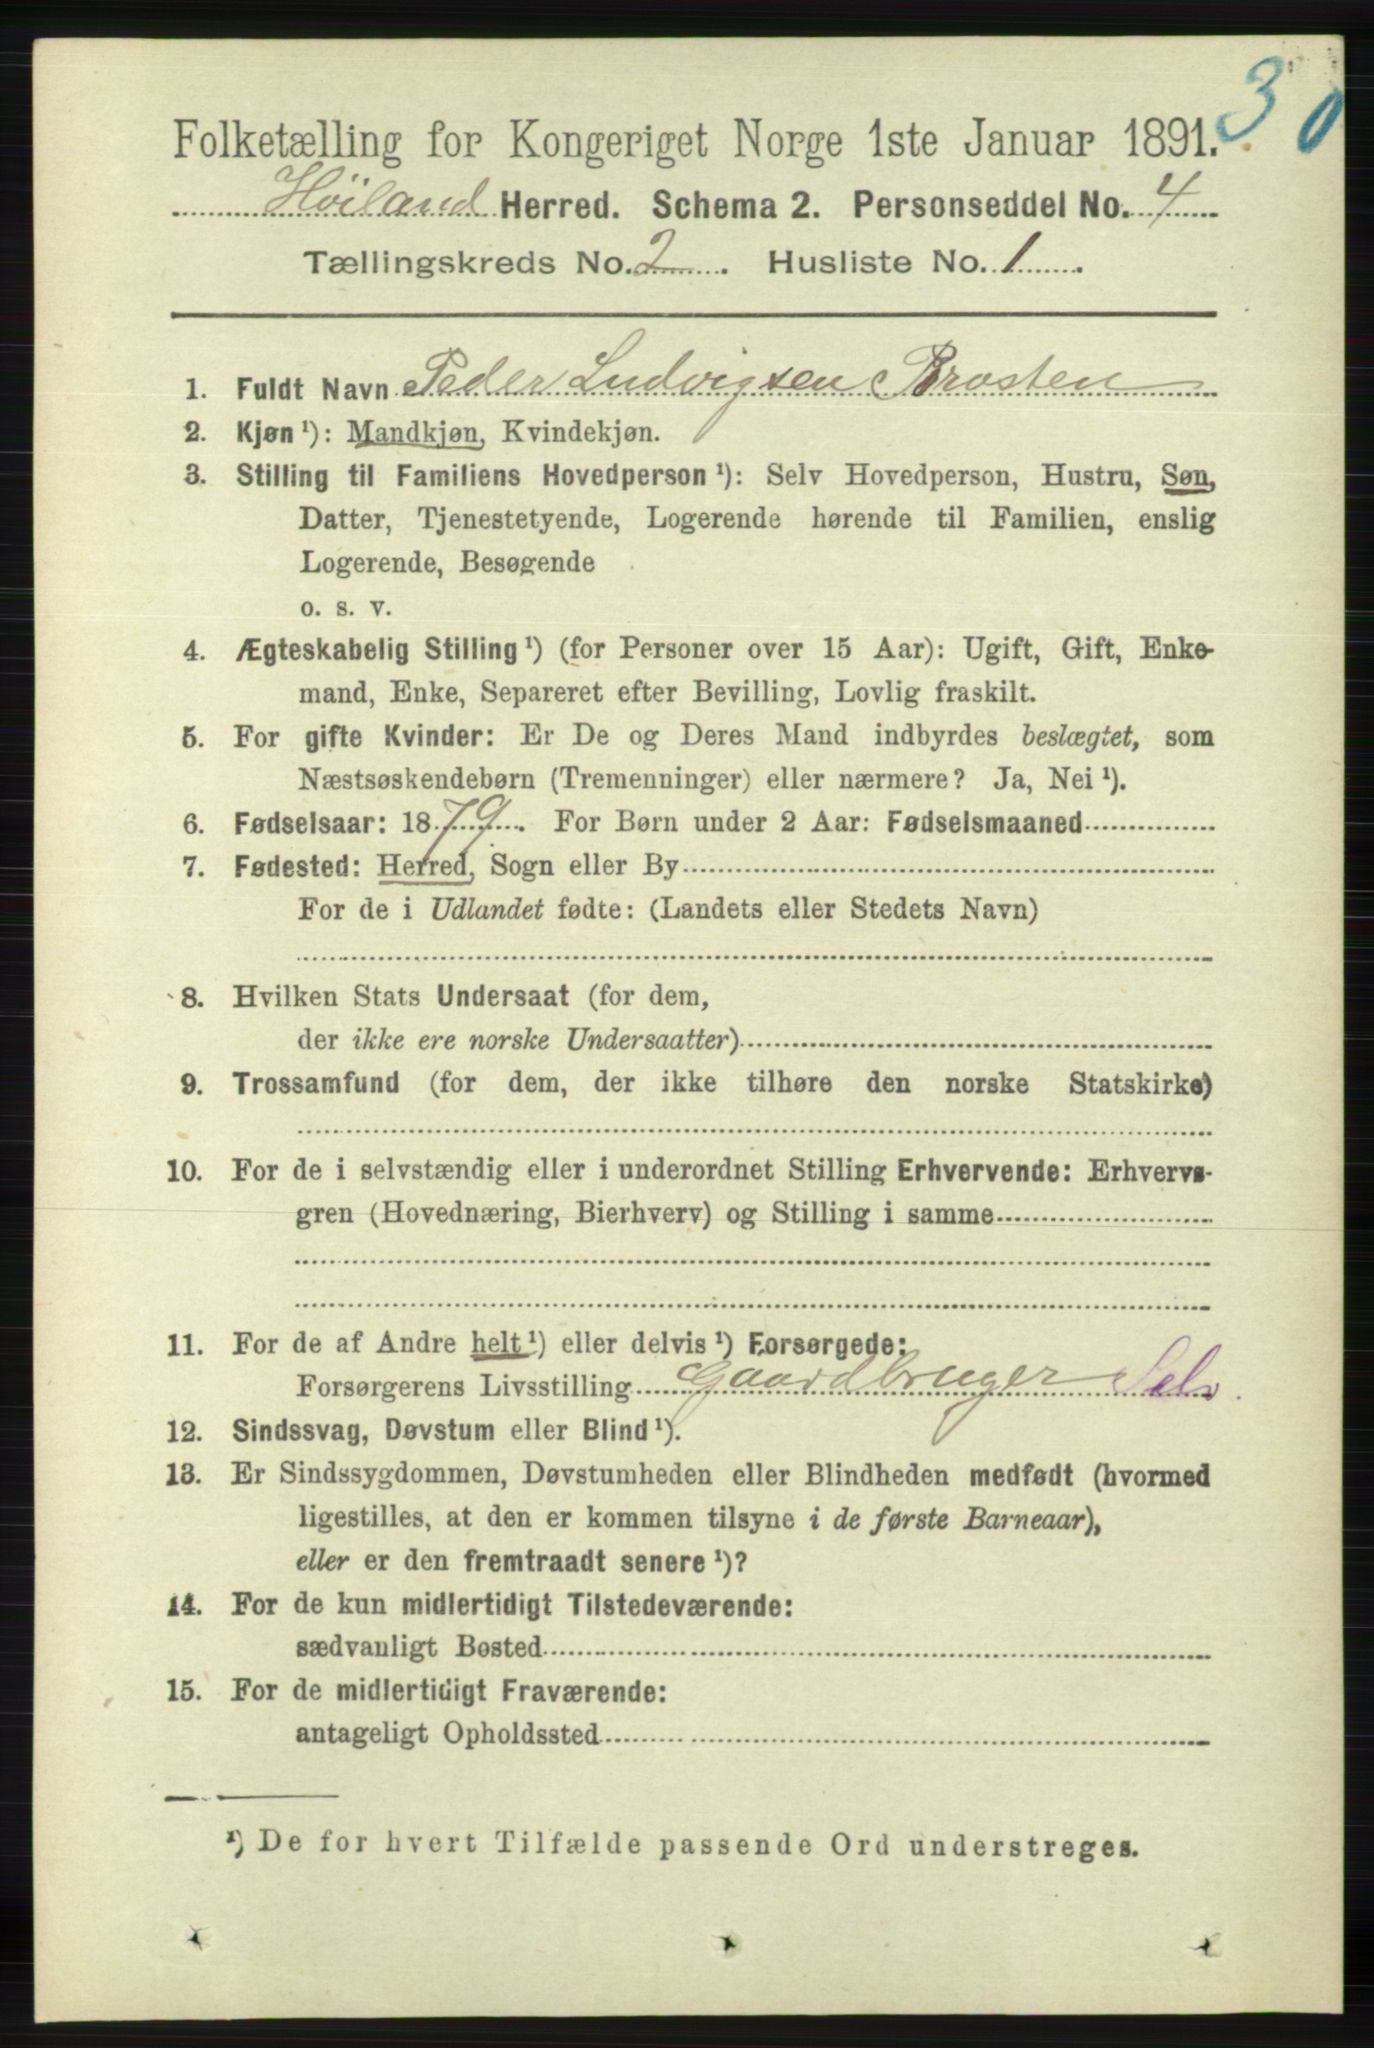 30
Folketælling for Kongeriget Norge 1ste Januar 1891.
Høiland Herred. Schema 2. Personseddel No. 4
Tællingskreds No. 2. Husliste No. 1.
1. Fuldt Navn Peder Ludvigsen Brosten
2. Kjøn ¹): Mandkjøn, Kvindekjøn.
3. Stilling til Familiens Hovedperson ¹): Selv Hovedperson, Hustru, Søn,
Datter, Tjenestetyende, Logerende hørende til Familien, enslig
Logerende, Besøgende
o. s. v.
4. Ægteskabelig Stilling ¹) (for Personer over 15 Aar): Ugift, Gift, Enke-
mand, Enke, Separeret efter Bevilling, Lovlig fraskilt.
5. For gifte Kvinder: Er De og Deres Mand indbyrdes beslægtet, som
Næstsøskendebørn (Tremenninger) eller nærmere? Ja, Nei ¹).
6. Fødselsaar: 1879. For Børn under 2 Aar: Fødselsmaaned
7. Fødested: Herred, Sogn eller By
For de i Udlandet fødte: (Landets eller Stedets Navn)
8. Hvilken Stats Undersaat (for dem,
der ikke ere norske Undersaatter)
9. Trossamfund (for dem, der ikke tilhøre den norske Statskirke)
10. For de i selvstændig eller i underordnet Stilling Erhvervende: Erhvervs-
gren (Hovednæring, Bierhverv) og Stilling i samme
11. For de af Andre helt ¹) eller delvis ¹) Forsørgede:
Forsørgerens Livsstilling Gaardbruger Selv.
12. Sindssvag, Døvstum eller Blind ¹).
13. Er Sindssygdommen, Døvstumheden eller Blindheden medfødt (hvormed
ligestilles, at den er kommen tilsyne i de første Barneaar),
eller er den fremtraadt senere ¹)?
14. For de kun midlertidigt Tilstedeværende:
sædvanligt Bosted
15. For de midlertidigt Fraværende:
antageligt Opholdssted
¹) De for hvert Tilfælde passende Ord understreges.